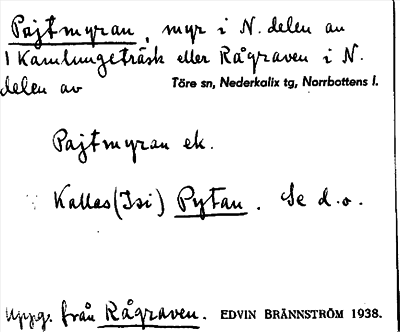 Pajtmyran, myr i N. delen av
Kamlungeträsk eller Rågraven i N.
delen av
Töre sn, Nederkalix tg, Norrbottens l.
Pajtmyran ek.
Kallas (Isi) Pytan. Se d.o.
Uppg. från Rågraven. EDVIN BRÄNNSTRÖM 1938.